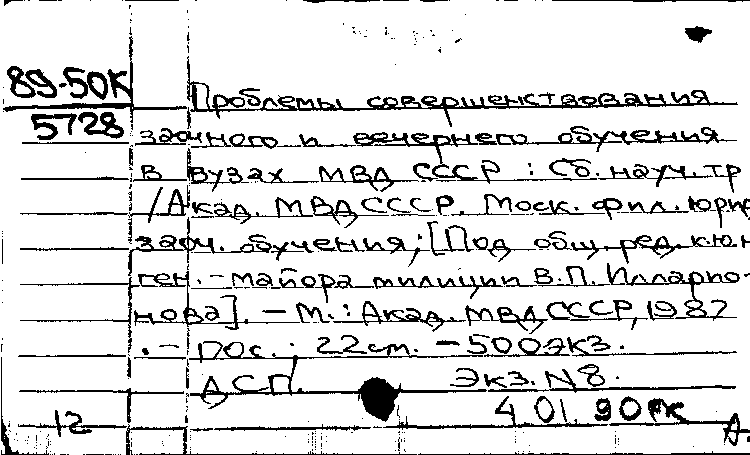 89-50К
5728
Проблемы совершенствования
заочного и вечернего обучения
в вузах МВД СССР : Сб. науч. тр
/Акад. МВД СССР. Моск. фил. юрид
заоч. обучения; [Под общ. ред. к.ю.н
ген. - майора милиции В.П. Илларио-
нова]. - М. : Акад. МВД СССР, 1987
. - 22 см. - 500 экз.
ДСП. Экз. N 8.
12 4 01. 90